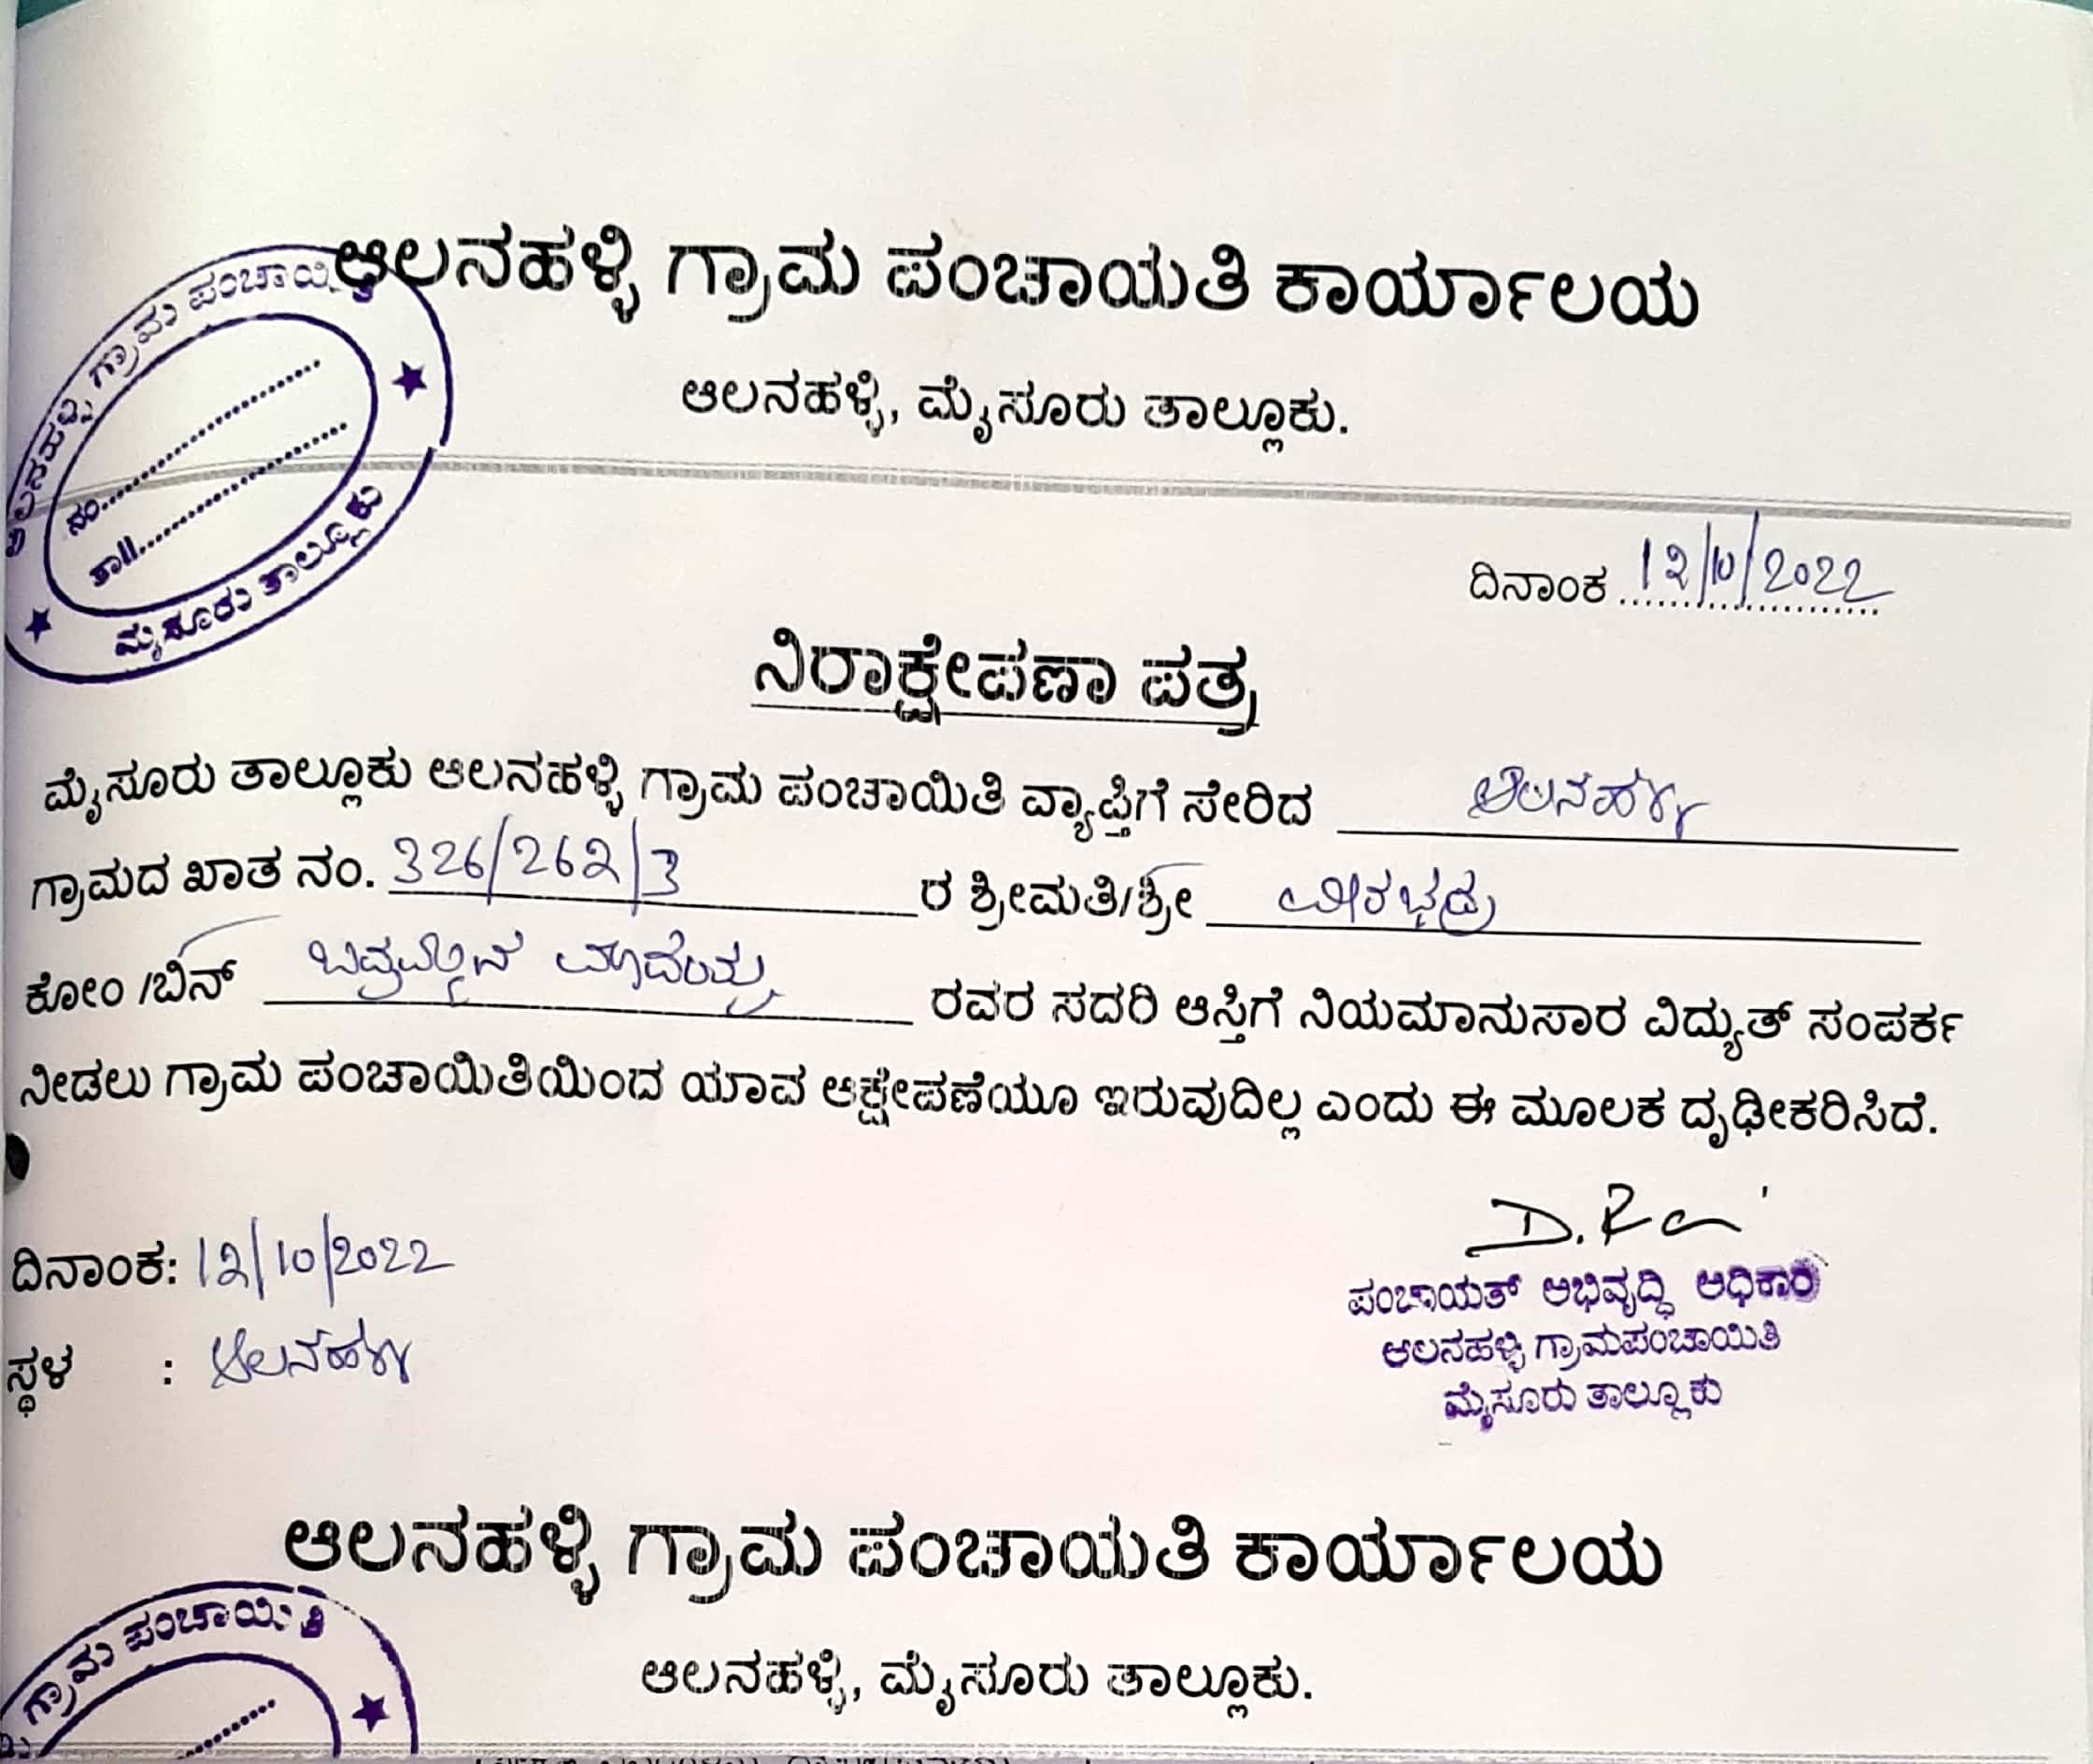 ಆಲನಹಳ್ಳಿ ಗ್ರಾಮ ಪಂಚಾಯತಿ ಕಾರ್ಯಾಲಯ
ಆಲನಹಳ್ಳಿ, ಮೈಸೂರು ತಾಲ್ಲೂಕು.
ಆಲನಹಳ್ಳಿ ಗ್ರಾಮ ಪಂಚಾಯಿತಿ
ನಂ..............................
ತಾ||..............................
ಮೈಸೂರು ತಾಲ್ಲೂಕು
ದಿನಾಂಕ 12/10/2022
ನಿರಾಕ್ಷೇಪಣಾ ಪತ್ರ
ಮೈಸೂರು ತಾಲ್ಲೂಕು ಆಲನಹಳ್ಳಿ ಗ್ರಾಮ ಪಂಚಾಯಿತಿ ವ್ಯಾಪ್ತಿಗೆ ಸೇರಿದ ಆಲನಹಳ್ಳಿ
ಗ್ರಾಮದ ಖಾತ ನಂ. 326/262/3 ರ ಶ್ರೀಮತಿ/ಶ್ರೀ ವೀರಭದ್ರ
ಕೋಂ /ಬಿನ್ ಮಾದಯ್ಯ ರವರ ಸದರಿ ಆಸ್ತಿಗೆ ನಿಯಮಾನುಸಾರ ವಿದ್ಯುತ್ ಸಂಪರ್ಕ
ನೀಡಲು ಗ್ರಾಮ ಪಂಚಾಯಿತಿಯಿಂದ ಯಾವ ಆಕ್ಷೇಪಣೆಯೂ ಇರುವುದಿಲ್ಲ ಎಂದು ಈ ಮೂಲಕ ದೃಢೀಕರಿಸಿದೆ.
ದಿನಾಂಕ: 12/10/2022
ಸ್ಥಳ : ಆಲನಹಳ್ಳಿ
ಪಂಚಾಯತ್ ಅಭಿವೃದ್ಧಿ ಅಧಿಕಾರಿ
ಆಲನಹಳ್ಳಿ ಗ್ರಾಮಪಂಚಾಯಿತಿ
ಮೈಸೂರು ತಾಲ್ಲೂಕು
ಆಲನಹಳ್ಳಿ ಗ್ರಾಮ ಪಂಚಾಯತಿ ಕಾರ್ಯಾಲಯ
ಆಲನಹಳ್ಳಿ, ಮೈಸೂರು ತಾಲ್ಲೂಕು.
ಗ್ರಾಮ ಪಂಚಾಯಿತಿ